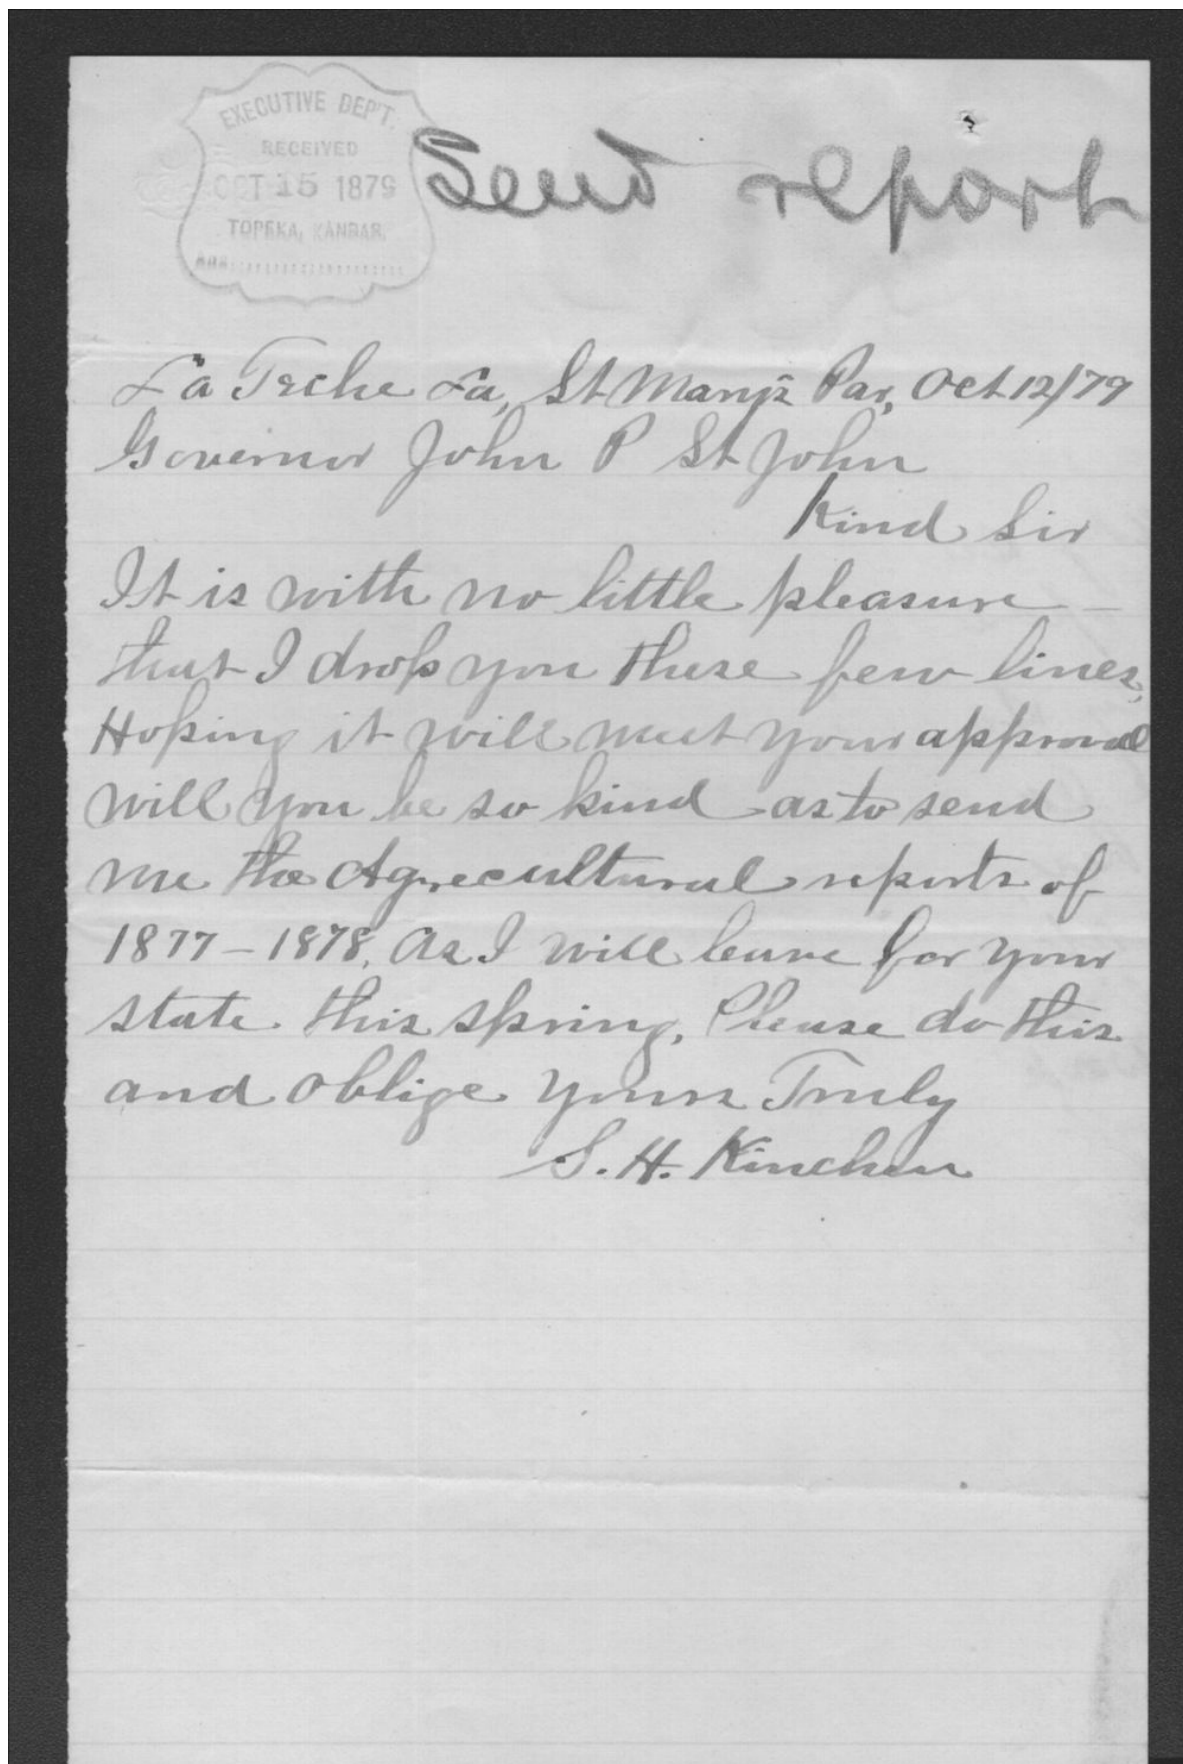 EXECUTIVE DEP'T.
RECEIVED
OCT 15 1879
TOPEKA, KANSAS.
ANS.....................
Send report
La Teche La, St Mary's Par, Oct 12/79
Governor John P St John
Kind Sir
It is with no little pleasure
that I drop you these few lines,
Hoping it will meet your approval
will you be so kind as to send
me the Agrecultural reports of
1877-1878. As I will leave for your
state this spring, Please do this
and oblige Yours Truly
S. H. Kinchen